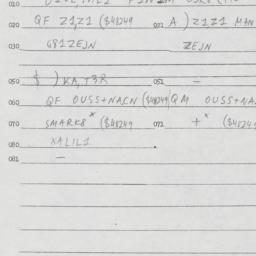 010
020 QF Z1,Z1 ($48249 021 A ) Z1Z1 MAN
030 G81ZEJN ZEJN
050 $ ) KA,T3R 051 —
060 QF OUSS+NACN ($48249 QM OUSS+NA
070 SMARK8 ($48249 071 +x ($4824
080 NALIL1 .
081 —